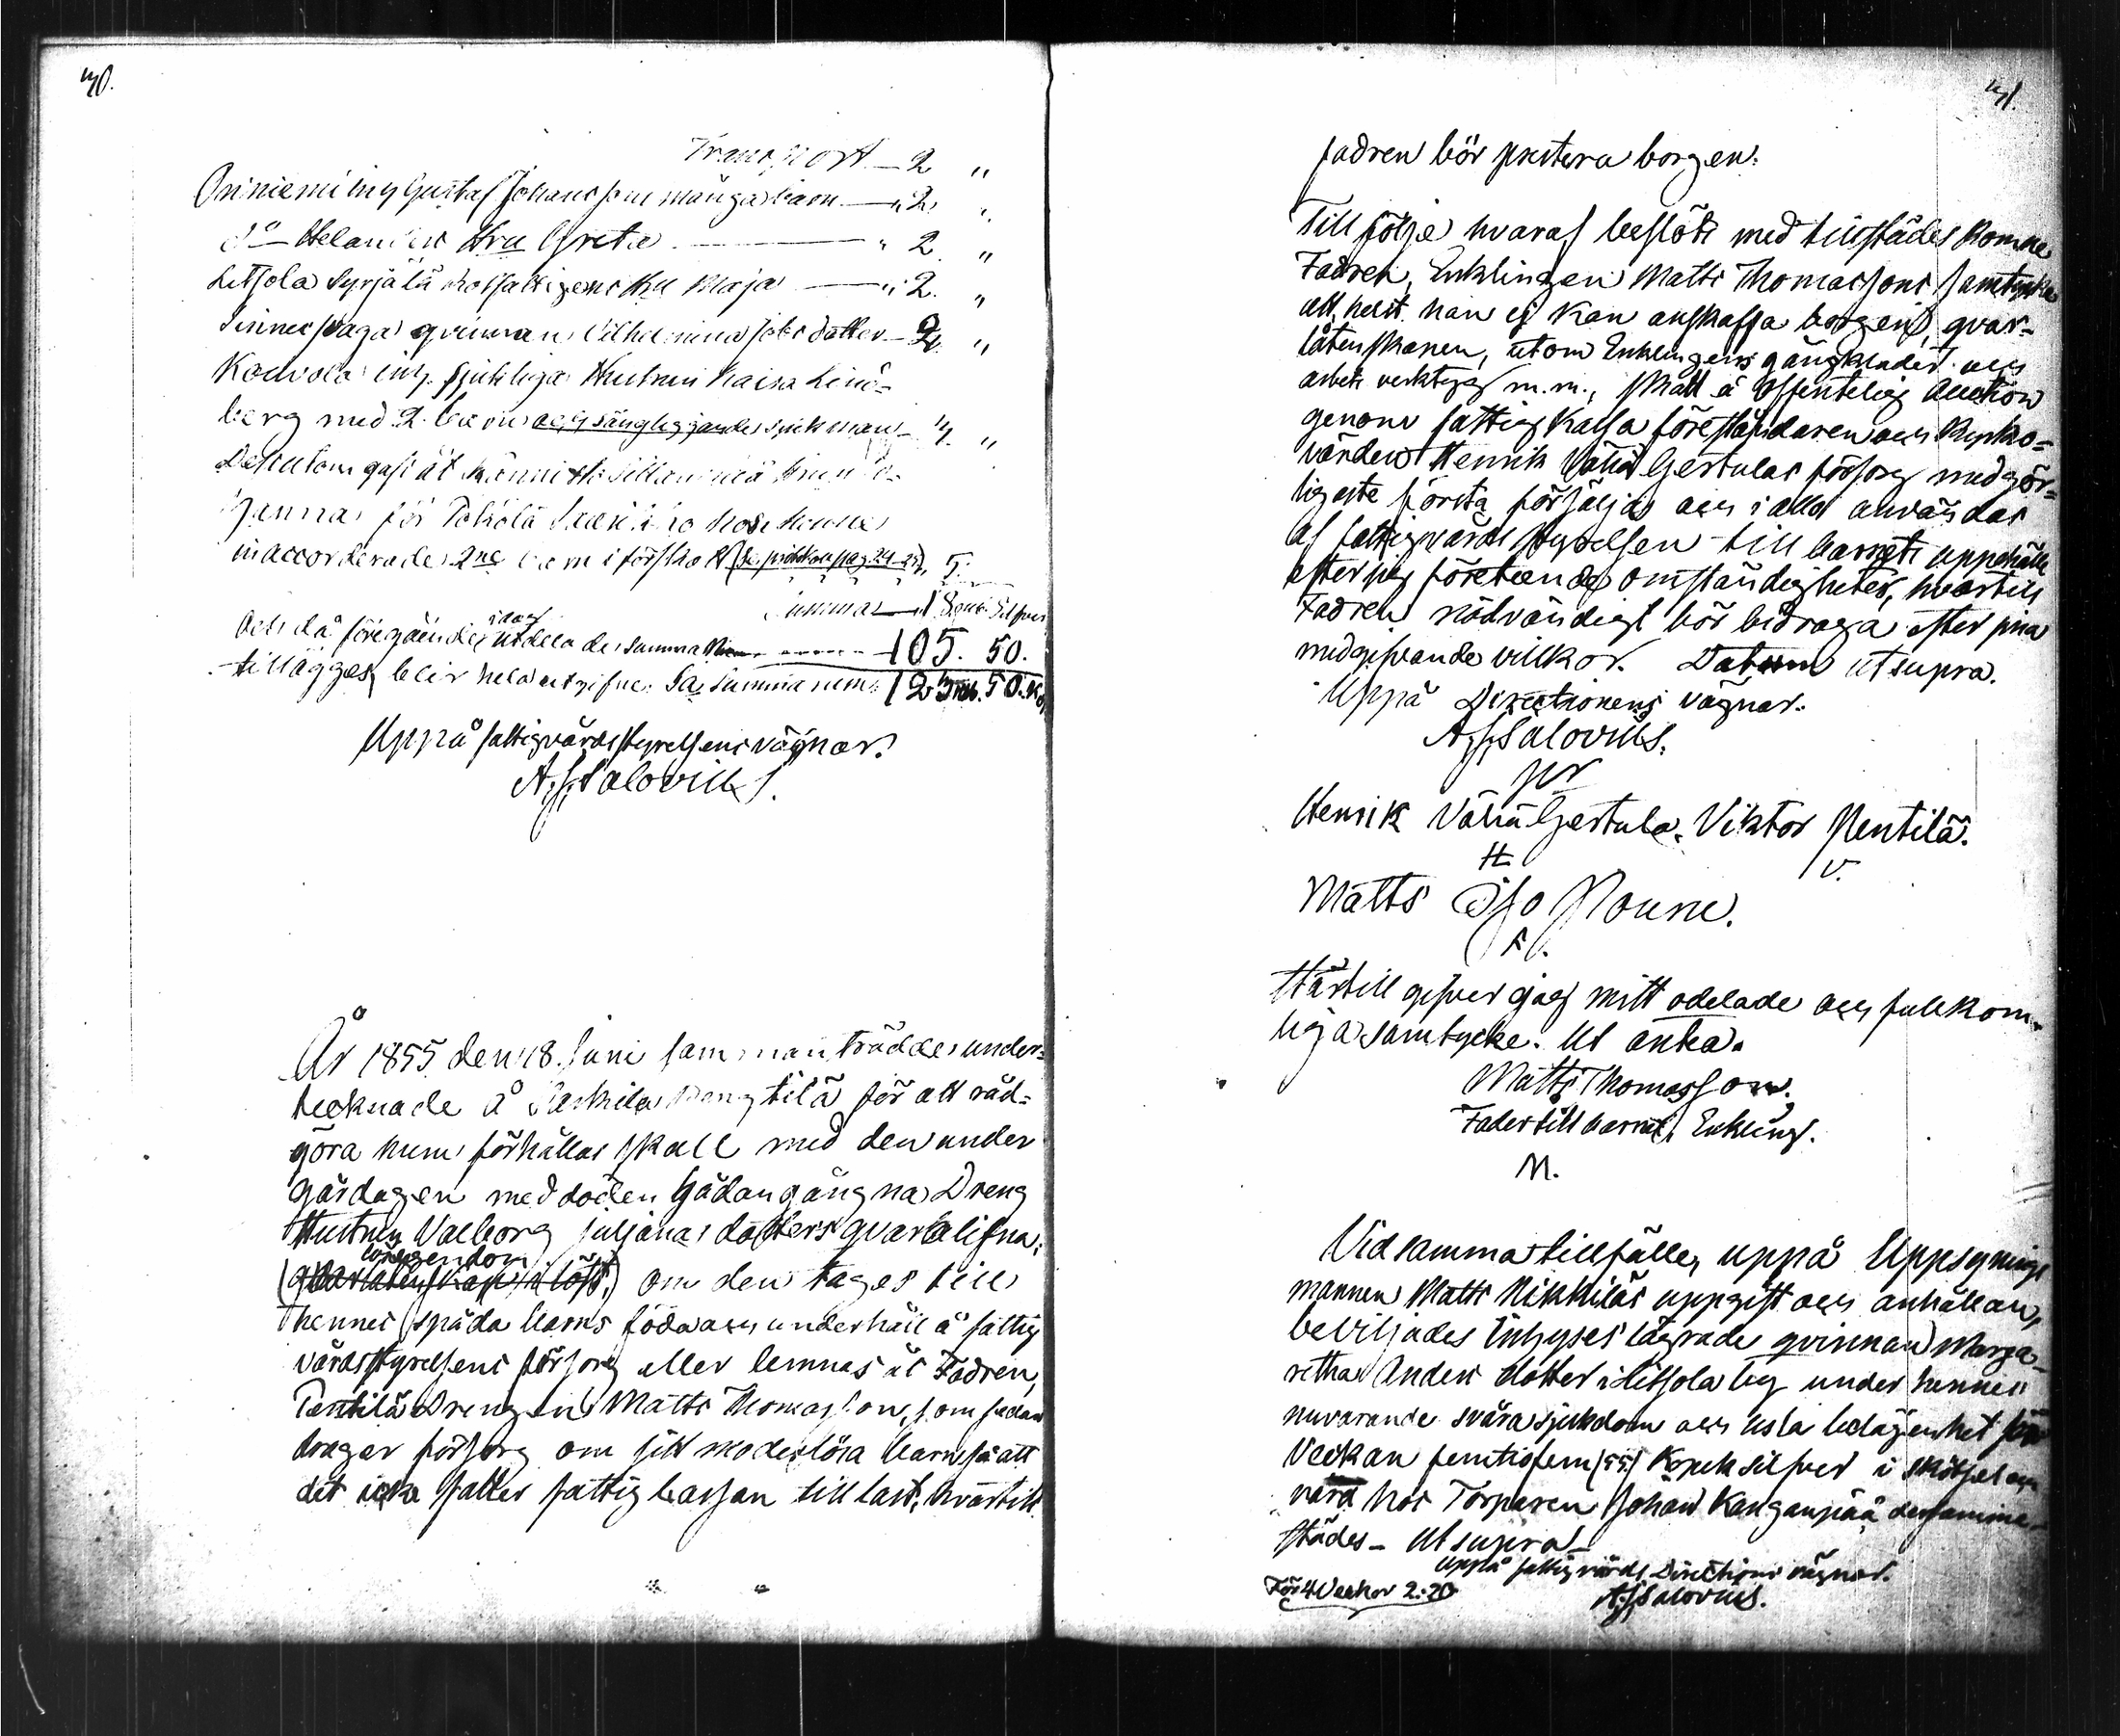 30.
Transport — 2 "
Oriniemi by Gustaf Johanssons många barn — " 2 "
d:o Helanders Hru Greta — " 2 "
Letsola Syrjälä rotfattigens Hu Maja — " 2. "
qvinnan Vilhelmina Johs dotter — 2 "
Kouvola by sjukliga Hustrun Kaisa Lind-
berg med 2 barn och sängliggande sjuk man — 4. "
Dessutom gafs åt
för Tokola
inaccorderade 2ne barn i förskott (se protokoll pag 24-25) " 5.
Summa — 18 rub. Silfver
Och då föregående idag utdelade summa — 105. 50.
tillägges, blir hela utgifne Sa Summa rum: 123 rub. 50. Kop
Uppå fattigvårdsstyrelsens vägnar.
A. J. Salovius.
År 1855 den 18. Juni sammanträdde under-
tecknade å Paskila Pengtilä för att råd-
göra huru förhållas skall med den under
gårdagen med döden hädangångna Dreng
Hustrun Valborg Juljana dotters qvarblifna
lösegendom
(qvarlåtenskap i löst,) om den tages till
hennes späda barns föda och underhåll å fattig
vårdsstyrelsens försorg eller lemnas åt Fadren,
Pentilä Drengen Matts Thomasson, som sedan
drager försorg om sitt moderlösa barn så att
det icke faller fattigcassan till last, hvartill
31.
fadren bör prestera borgen.
Till följe hvaraf beslöts med tillstädes komne
Fadren, Enklingen Matts Thomassons samtycke
att, helst han ej kan anskaffa borgen, qvar-
låtenskapen, utom Enklingens gångkläder och
arbets verktyg m.m., skall å offentelig Auction
genom fattig Kassa föreståndaren och Kyrko-
värden Henrik Vähä Gertulas försorg medgör-
ligaste första försäljas och i allo användas
af fattigvårds styrelsen till barnets uppehälle
efter sig företeende omständigheter, hvartill
Fadren nödvändigt bör bidraga efter sina
medgifvande villkor. Datum ut supra.
Uppå Directionens vägnar.
A. J. Salovius.
Henrik Vähä Gertula. Viktor Pentilä.
H. V.
Matts Iso Poune.
Härtill gifver jag mitt odelade och fullkom-
liga samtycke. Ut antea.
Matts Thomasson.
Fader till barnet, Enkling.
M.
Vid samma tillfälle, uppå Uppsynings
mannen Matts Nikkiläs uppgift och anhållan,
beviljades Inhyses lägrade qvinnan Marga-
retha Anders dotter i Litsola by under hennes
nuvarande svåra sjukdom och usla belägenhet för
Veckan femtiofem (55) Kopek silfver i skötsel och
vård hos Torparen Johan Kanganpää dersamma-
städes — Ut supra —
Uppå fattigvårds Directions vägnar.
För 4 Veckor 2:20 A. J. Salovius.